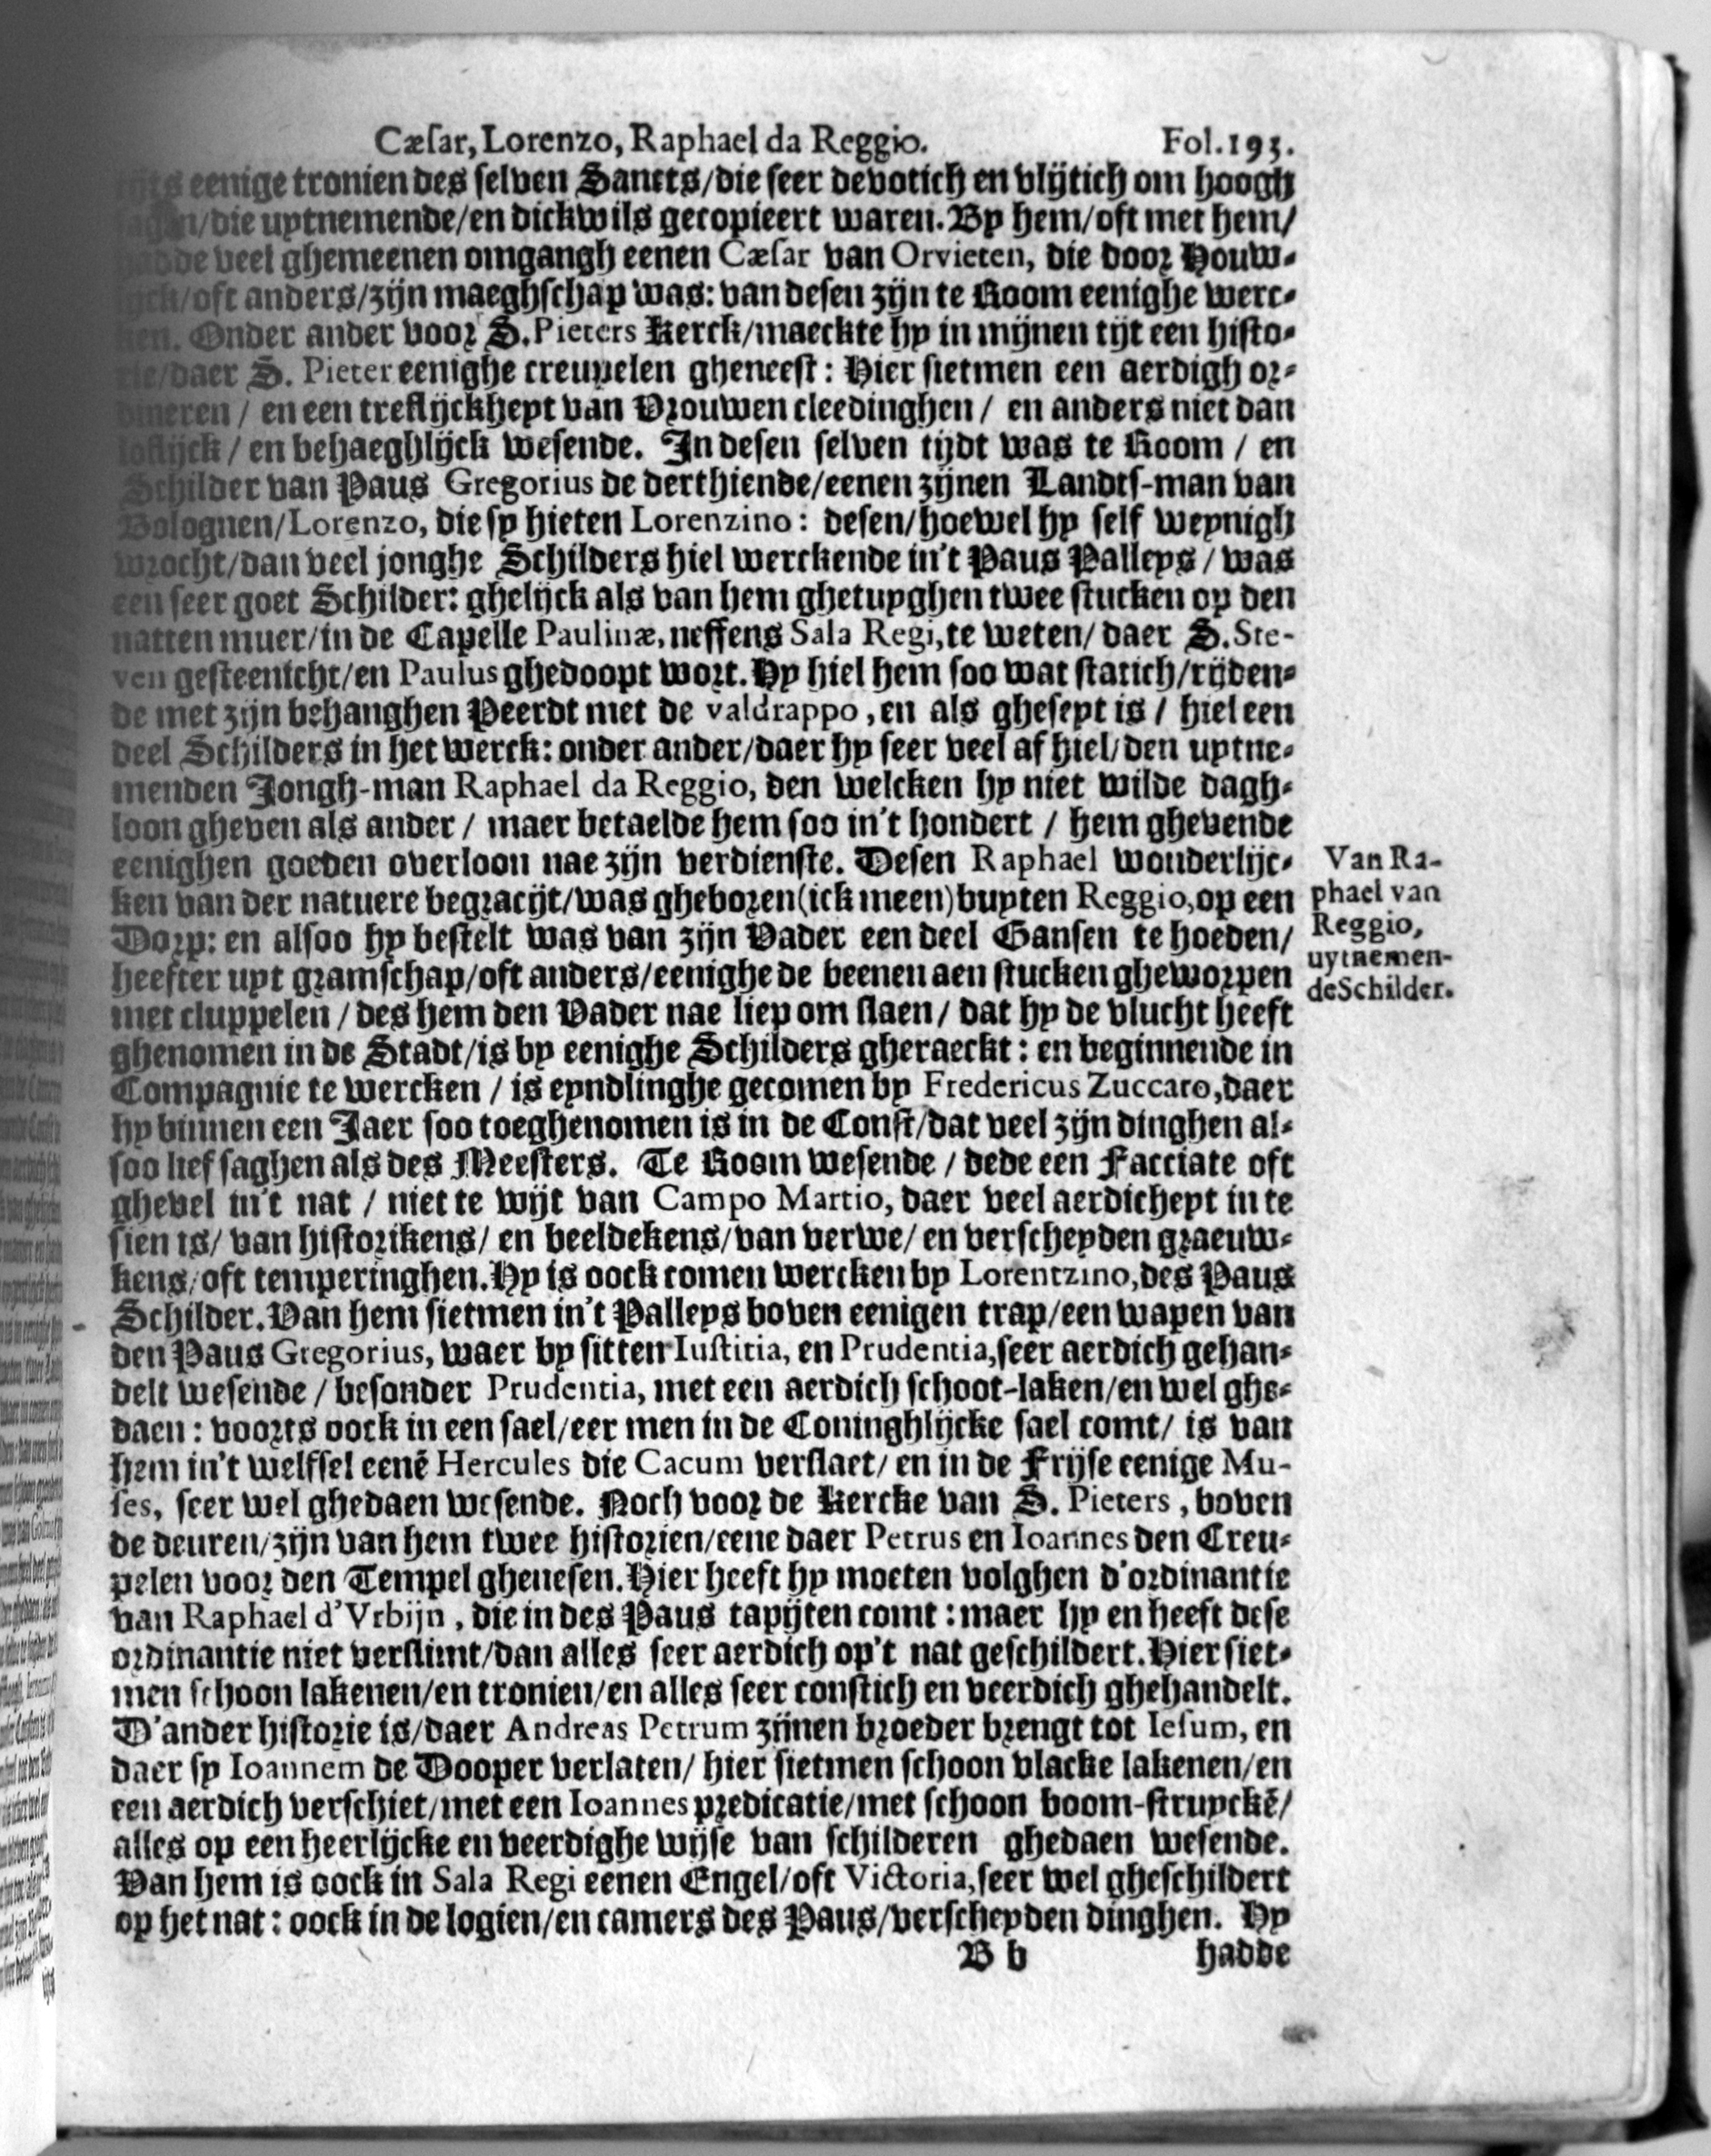 Cæſar, Lorenzo, Raphael da Reggio. Fol. 193.
eenige tronien des ſelven Sancts/die ſeer devotich en vlijtich om hoogh
/die uytnemende/en dickwils gecopieert waren. By hem/oft met hem/
hadde veel ghemeenen omgangh eenen Cæſar van Orvieten, die door Houw-
lijck/oft anders/zijn maeghſchap was: van deſen zijn te Room eenighe werc-
ken. Onder ander voor S. Pieters Kerck/maeckte hy in mijnen tijt een hiſto-
rie/daer S. Pieter eenighe creupelen gheneeſt: Hier ſietmen een aerdigh or-
dineren / en een treflijckheyt van Vrouwen cleedinghen / en anders niet dan
loflijck / en behaeghlijck weſende. In deſen ſelven tijdt was te Room / en
Schilder van Paus Gregorius de derthiende/eenen zijnen Landtſ-man van
Bolognen/Lorenzo, die ſy hieten Lorenzino: deſen/hoewel hy ſelf weynigh
wrocht/dan veel jonghe Schilders hiel werckende in't Paus Palleys / was
een ſeer goet Schilder: ghelijck als van hem ghetuyghen twee ſtucken op den
natten muer/in de Capelle Paulinæ, neffens Sala Regi, te weten/ daer S. Ste-
ven geſteenicht/en Paulus ghedoopt wort. Hy hiel hem ſoo wat ſtatich/rijden-
de met zijn behanghen Peerdt met de valdrappo, en als gheſeyt is / hiel een
deel Schilders in het werck: onder ander/daer hy ſeer veel af hiel/den uytne-
menden Jongh-man Raphael da Reggio, den welcken hy niet wilde dagh-
loon gheven als ander / maer betaelde hem ſoo in't hondert / hem ghevende
eenighen goeden overloon nae zijn verdienſte. Deſen Raphael wonderlijc-
ken van der natuere begracijt/was gheboren (ick meen) buyten Reggio, op een
Dorp: en alſoo hy beſtelt was van zijn Vader een deel Ganſen te hoeden/
heefter uyt gramſchap/oft anders/eenighe de beenen aen ſtucken gheworpen
met cluppelen / des hem den Vader nae liep om ſlaen / dat hy de vlucht heeft
ghenomen in de Stadt/is by eenighe Schilders gheraeckt: en beginnende in
Compagnie te wercken / is eyndlinghe gecomen by Fredericus Zuccaro, daer
hy binnen een Jaer ſoo toeghenomen is in de Conſt/dat veel zijn dinghen al-
ſoo lief ſaghen als des Meeſters. Te Room weſende / dede een Facciate oft
ghevel in't nat / niet te wijt van Campo Martio, daer veel aerdicheyt in te
ſien is/ van hiſtorikens/ en beeldekens/van verwe/ en verſcheyden graeuw-
kens/oft temperinghen. Hy is oock comen wercken by Lorentzino, des Paus
Schilder. Van hem ſietmen in't Palleys boven eenigen trap/een wapen van
den Paus Gregorius, waer by ſitten Iuſtitia, en Prudentia, ſeer aerdich gehan-
delt weſende / beſonder Prudentia, met een aerdich ſchoot-laken/en wel ghe-
daen: voorts oock in een ſael/eer men in de Coninghlijcke ſael comt/ is van
hem in't welfſel eenē Hercules die Cacum verſlaet/ en in de Frijſe eenige Mu-
ſes, ſeer wel ghedaen weſende. Noch voor de Kercke van S. Pieters, boven
de deuren/zijn van hem twee hiſtorien/eene daer Petrus en Ioannes den Creu-
pelen voor den Tempel gheneſen. Hier heeft hy moeten volghen d'ordinantie
van Raphael d'Vrbijn, die in des Paus tapijten comt: maer hy en heeft deſe
ordinantie niet verſlimt/dan alles ſeer aerdich op't nat geſchildert. Hier ſiet-
men ſchoon lakenen/en tronien/en alles ſeer conſtich en veerdich ghehandelt.
D'ander hiſtorie is/daer Andreas Petrum zijnen broeder brengt tot Ieſum, en
daer ſy Ioannem de Dooper verlaten/ hier ſietmen ſchoon vlacke lakenen/en
een aerdich verſchiet/met een Ioannes predicatie/met ſchoon boom-ſtruyckē/
alles op een heerlijcke en veerdighe wijſe van ſchilderen ghedaen weſende.
Van hem is oock in Sala Regi eenen Engel/oft Victoria, ſeer wel gheſchildert
op het nat: oock in de logien/en camers des Paus/verſcheyden dinghen. Hy
B b hadde
Van Ra-
phael van
Reggio,
uytnemen-
de Schilder.